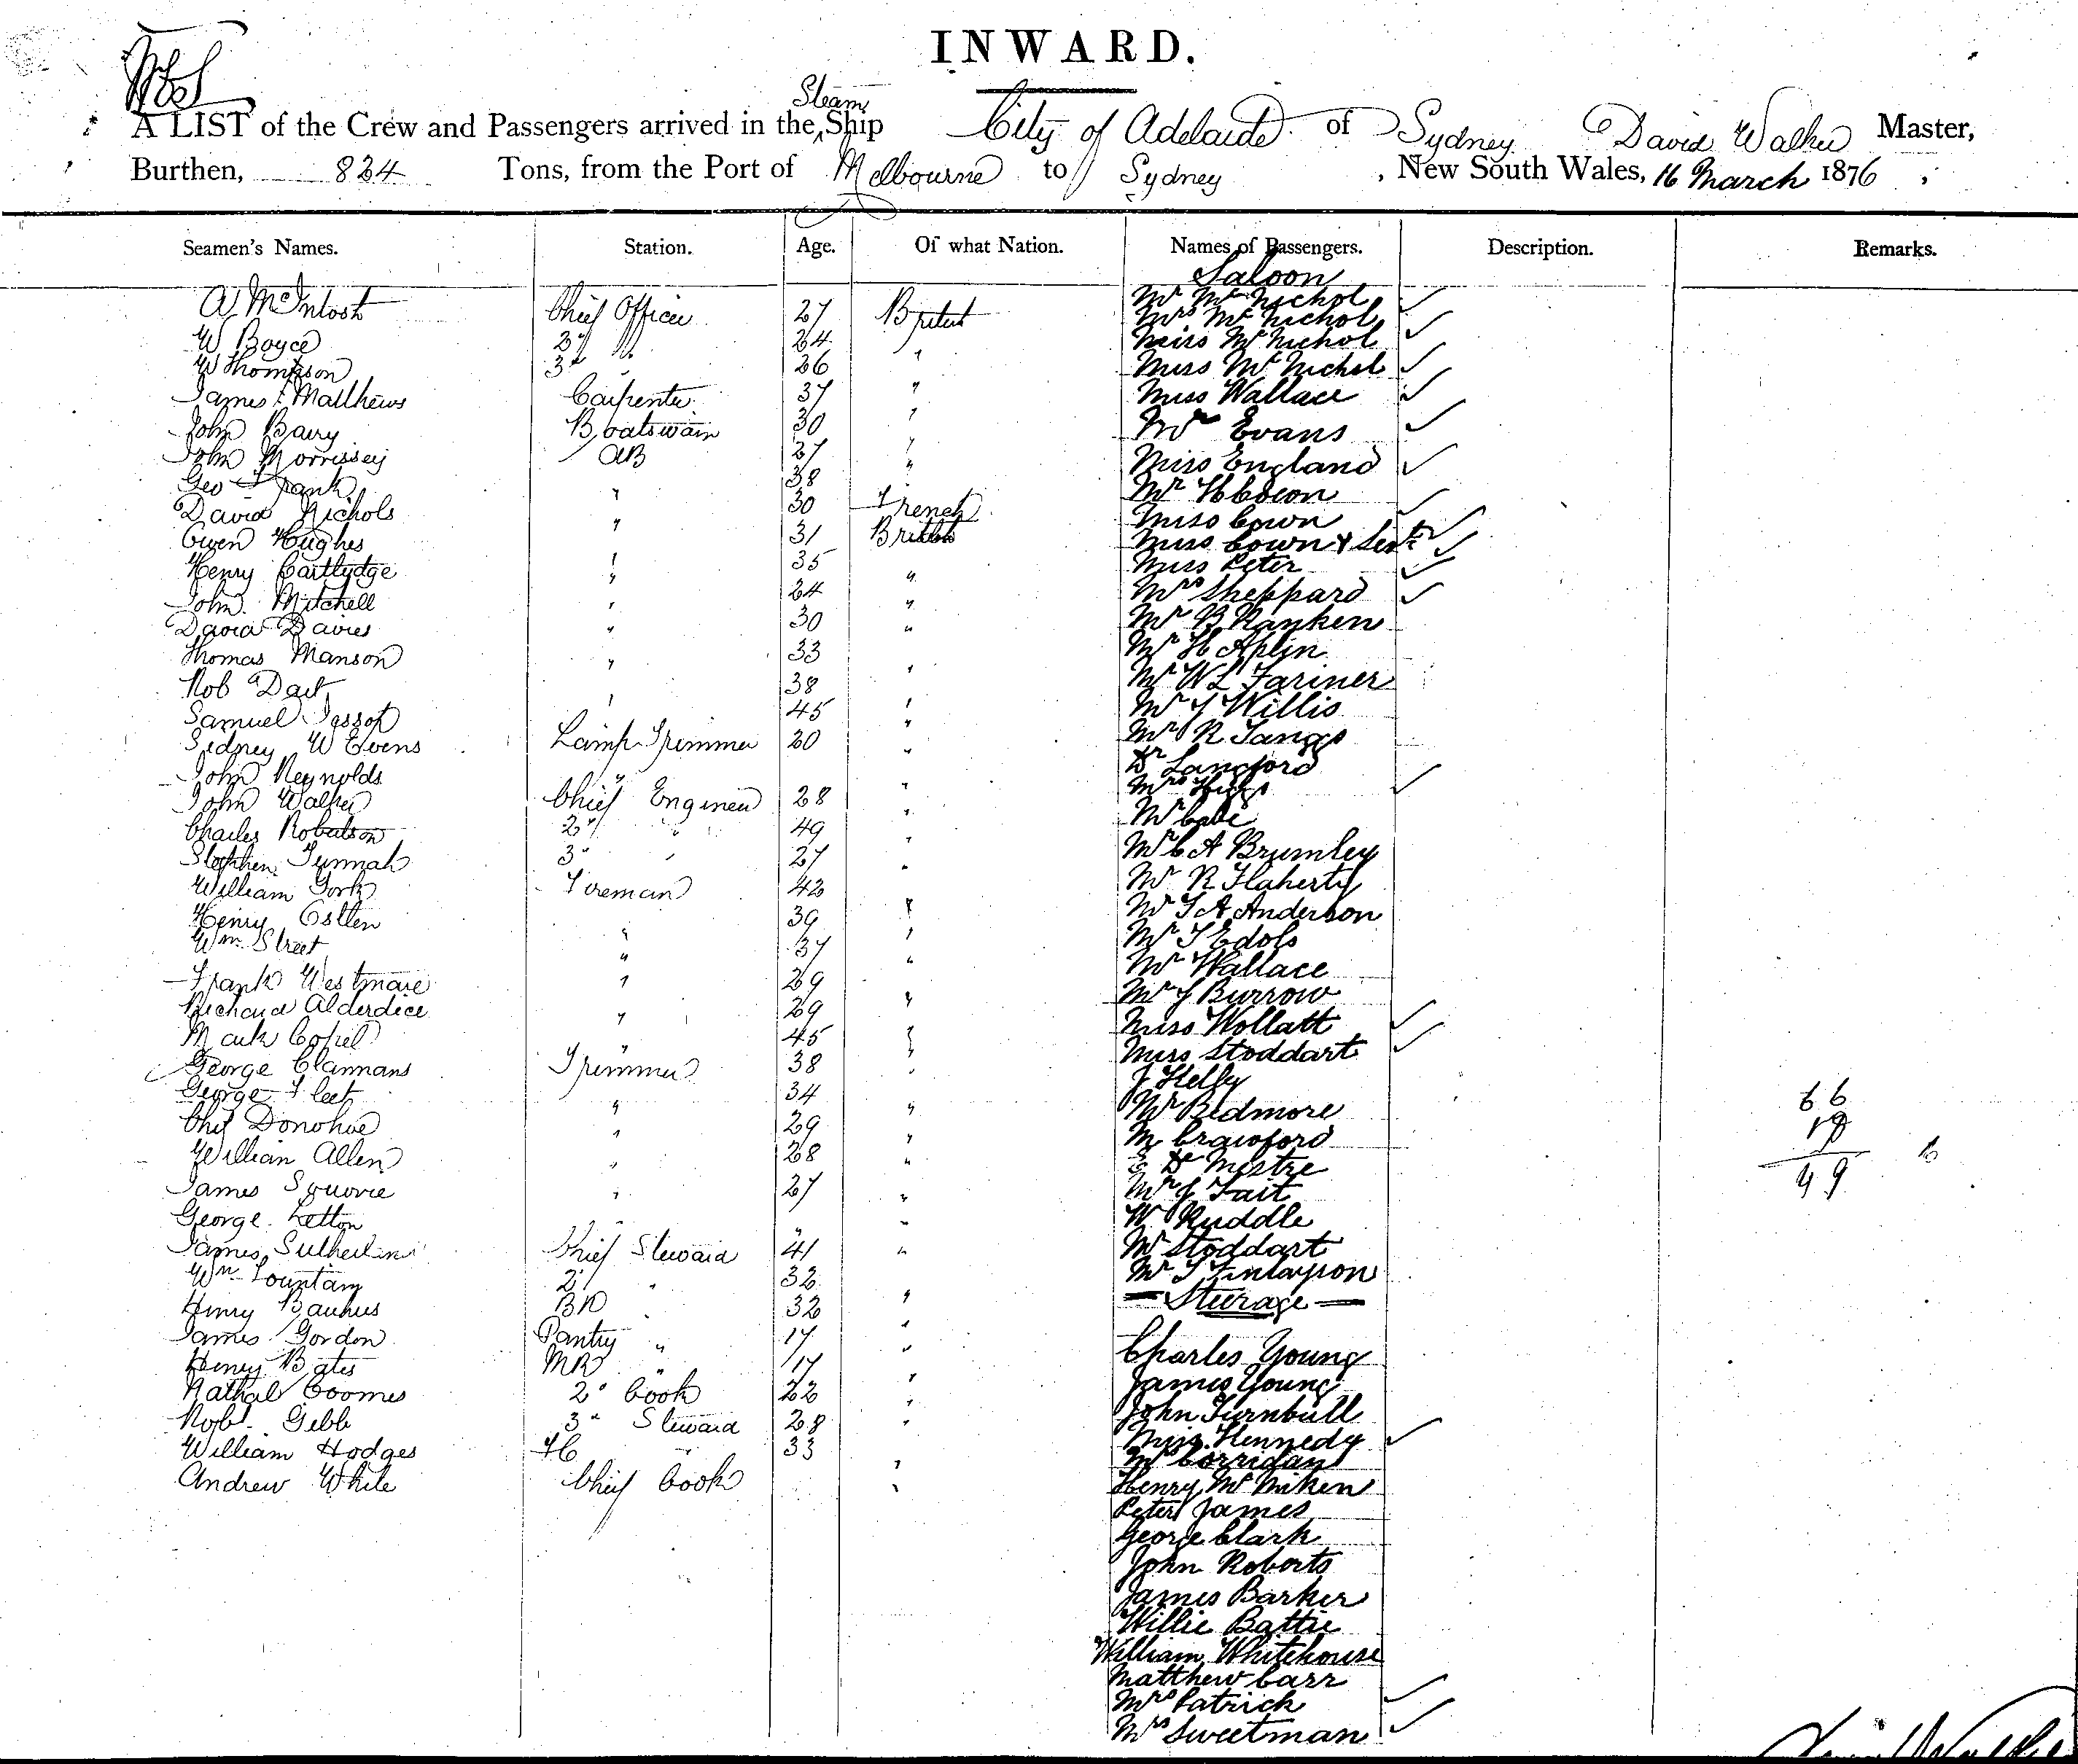 INWARD.
A LIST of the Crew and Passengers arrived in the Steam Ship City of Adelaide of Sydney David Walker Master,
Burthen, 824 Tons, from the Port of Melbourne to Sydney, New South Wales, 16 March 1876
Seamen's Names. Station. Age. Of what Nation. Names of Passengers. Description. Remarks.
Saloon
A McIntosh Chief Officer 27 British Mr McNichol
Mrs McNichol
W Boyce 2d " 24 Miss McNichol
W Thompson 3d 26 " Miss McNichol
James Matthews Carpenter 37 " Miss Wallace
John Barry Boatswain 30 " Mr Evans
John Morrissey AB 27 " Miss England
Geo Frank " 38 "
David Nichols " 30 French Miss Cown
Owen Hughes " 31 British Miss Cown & Servt
Henry Cartlydge " 35 " Miss Peter
John Mitchell " 24 " Mrs Sheppard
David Davies " 30 " Mr B Ranken
Thomas Manson " 33 " Mr H Aplin
Rob Dart " 38 " Mr W L
Samuel Jessop " 45 " Mr J Willis
Sidney W Evens Lamp Trimmer 20 " Mr R
John Reynolds " " Dr Langford
Mrs
John Walker Chief Engineer 28 " Mr
Charles Robertson 2d " 49 " Mr C A Brumley
Stephen Tunnah 3d " 27 " Mr R Flaherty
William York Fireman 42 " Mr T A Anderson
Henry Ostlen " 39 " Mr T Edols
Wm Street " 37 " Mr Wallace
Frank Westmare " 29 " Mr J Burrow
Richard Alderdice " 29 " Miss Wollatt
Mark " 45 " Miss Stoddart
George Clannans Trimmer 38 " J Kelly
George Fleet " 34 " Mr Bedmore
Chs Donohue " 29 " M Crawford
William Allen " 28 " De Mestre
James Squorie " 27 " Mr J Tait
George Letton " W Ruddle
James Sutherland Chief Steward 41 " Mr Stoddart
Wm Fountain 2d " 32 Mr T Finlayson
Henry BR " 32 " Steerage
James Gordon Pantry " 17 " Charles Young
Henry Bates MR " 17 " James Young
Nathal Coomes 2d Cook 22 " John Turnbull
Robt. Gibb 3d Steward 28 " Miss Kennedy
William Hodges FC " 33 " Mr Corridan
Andrew White Chief Cook " Henry McMiken
Peter James
George Clark
John Roberts
James Barker
Willie Battie
William Whitehouse
Matthew Carr
Mrs Patrick
Mrs Sweetman
66
49